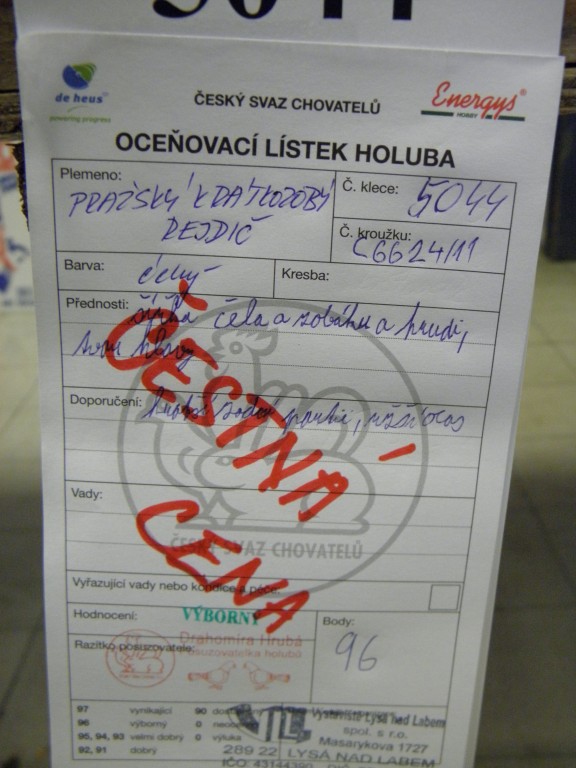 5044
de heus
powering progress
ČESKÝ SVAZ CHOVATELŮ
Energys®
HOBBY
OCEŇOVACÍ LÍSTEK HOLUBA
Plemeno:
PRAŽSKÝ KRÁTKOZOBÝ
REJDIČ
Č. klece: 5044
Č. kroužku:
C6624/11
Barva:
Kresba:
Přednosti: šířka čela a zobáku a hrudi,
tvar hlavy
Doporučení: ocas
ČESTNÁ
CENA
Vady:
ČESKÝ SVAZ CHOVATELŮ
Vyřazující vady nebo kondice a péče:
Hodnocení: VÝBORNÝ
Body:
96
Razítko posuzovatele:
Drahomíra Hrubá
posuzovatelka holubů
97 vynikající 90
96 výborný 0
95, 94, 93 velmi dobrý 0 výluka
92, 91 dobrý
Výstaviště Lysá nad Labem
spol. s r.o.
Masarykova 1727
289 22 LYSÁ NAD LABEM